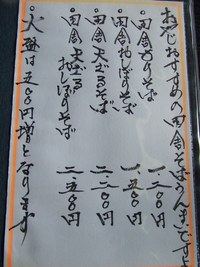 おろしおすすめの田舎そばうんまいですよ
○田舎せりそば 一、二〇〇円
○田舎おしぼりそば 一、五〇〇円
○田舎天ざるそば 二、二〇〇円
○田舎天ざるおしぼりそば 二、五〇〇円
○大盛は五〇〇円増となります